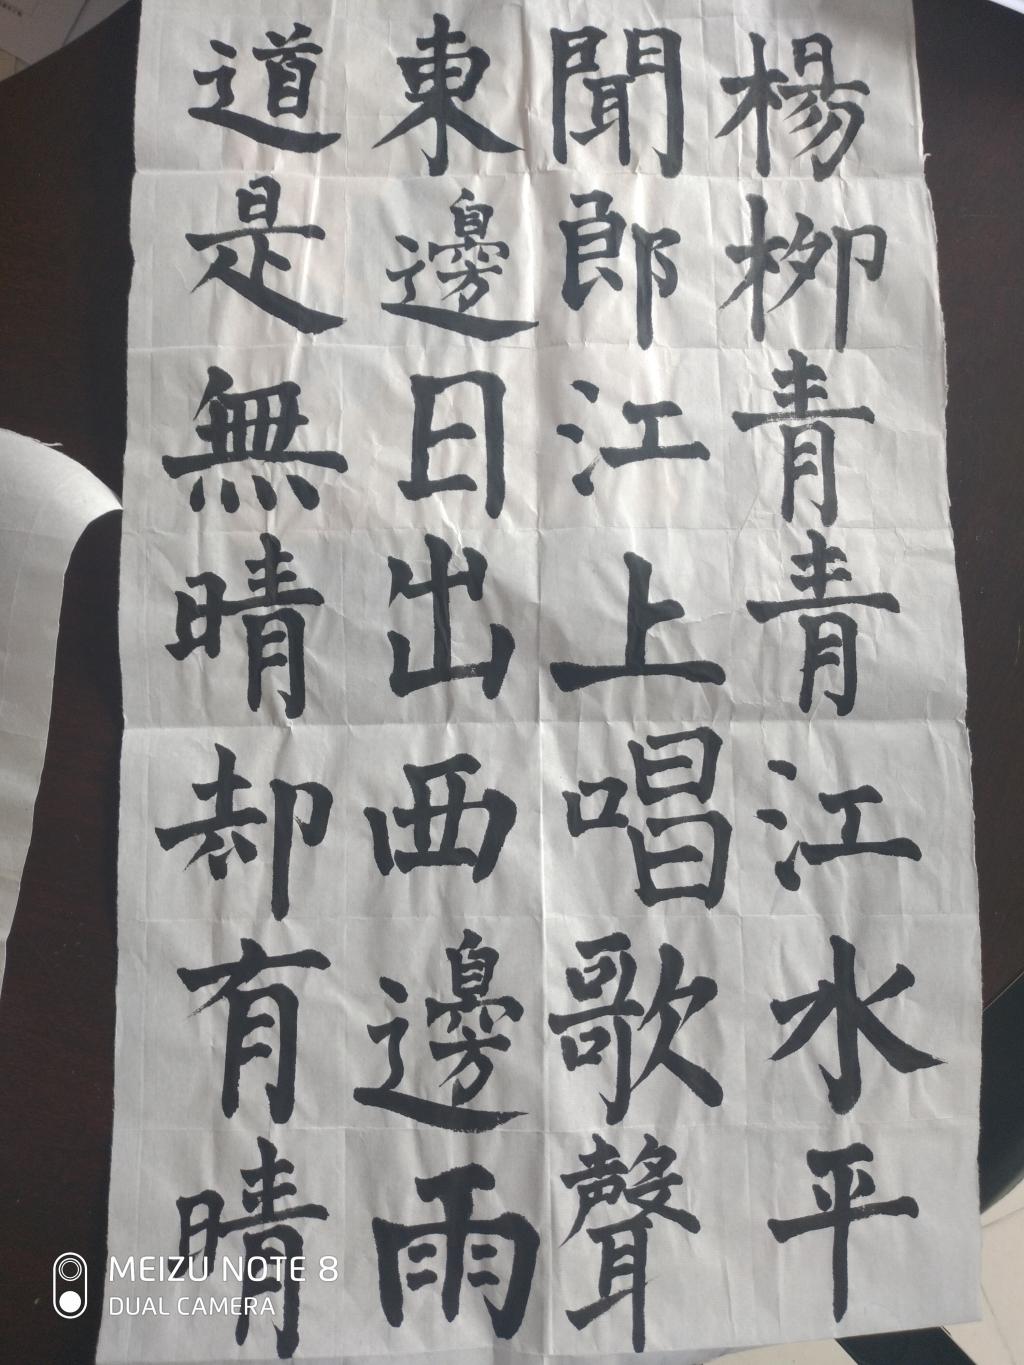 楊柳青青江水平
聞郎江上唱歌聲
東邊日出西邊雨
道是無晴却有晴
MEIZU NOTE 8
DUAL CAMERA